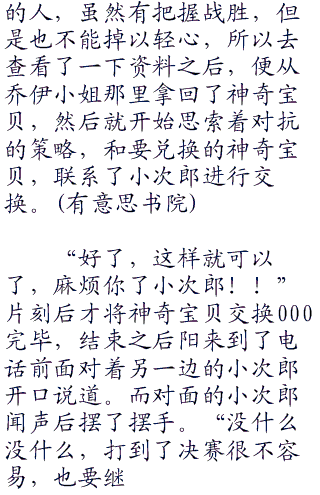 的人，虽然有把握战胜，但
是也不能掉以轻心，所以去
查看了一下资料之后，便从
乔伊小姐那里拿回了神奇宝
贝，然后就开始思索着对抗
的策略，和要兑换的神奇宝
贝，联系了小次郎进行交
换。(有意思书院)
“好了，这样就可以
了，麻烦你了小次郎！！”
片刻后才将神奇宝贝交换000
完毕，结束之后阳来到了电
话前面对着另一边的小次郎
开口说道。而对面的小次郎
闻声后摆了摆手。“没什么
没什么，打到了决赛很不容
易，也要继